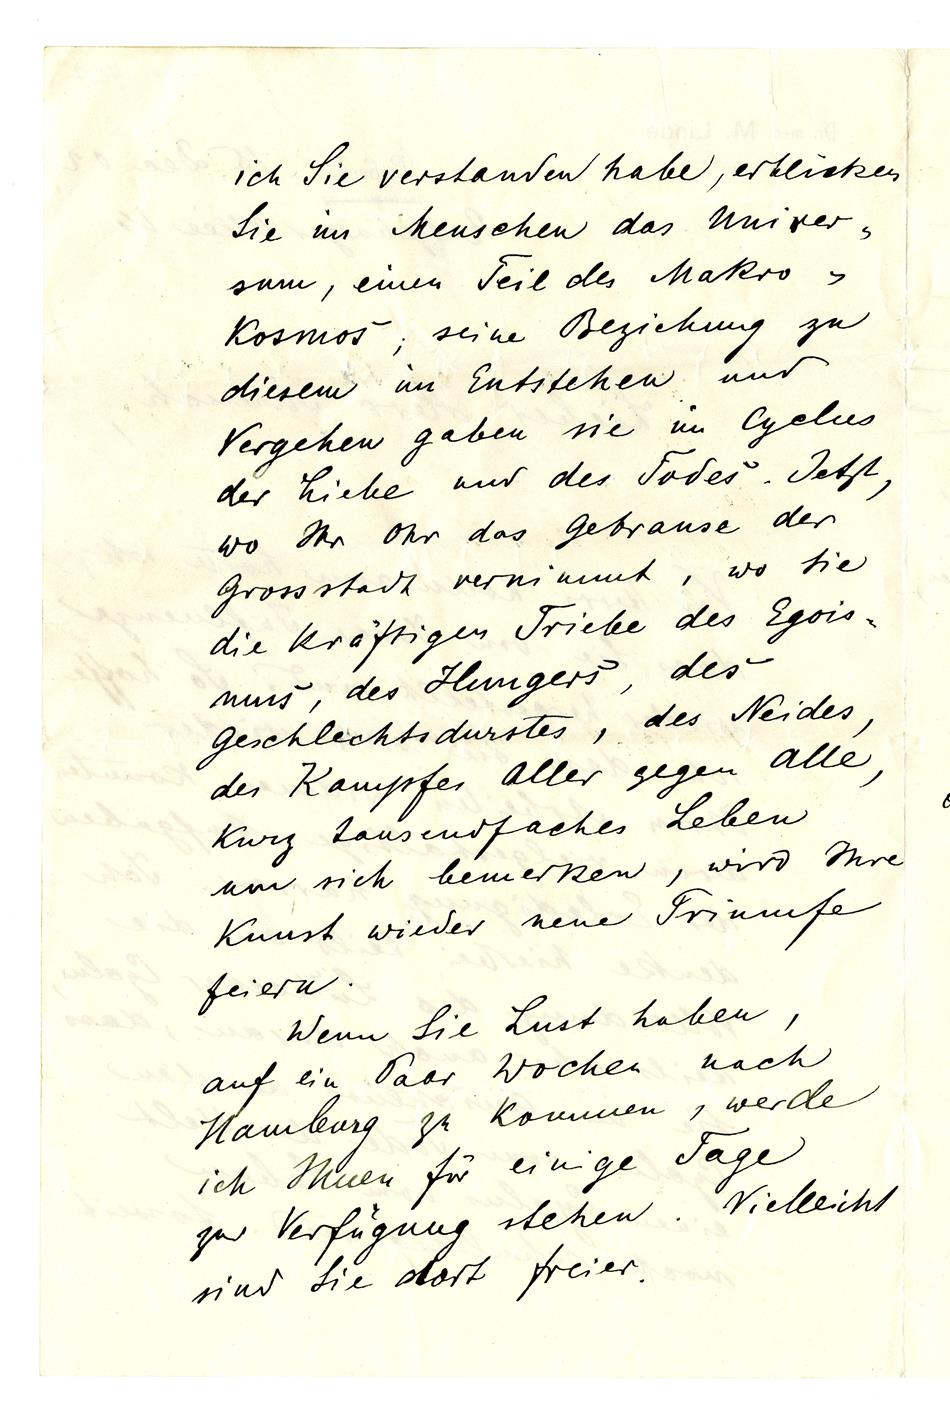 ich Sie verstanden habe, erblicken
Sie im Menschen das Univer-
sum, einen Teil des Makro-
kosmos; seine Beziehung zu
diesem im Entstehen und
Vergehen gaben sie im Cyclus
der Liebe und des Todes. Jetzt,
wo Ihr Ohr das Gebrause der
Grossstadt vernimmt, wo Sie
die kräftigen Triebe des Egois-
mus, des Hungers, des
Geschlechtsdurstes, des Neides,
des Kampfes Aller gegen Alle,
kurz tausendfaches Leben
um sich bemerken, wird Ihre
Kunst wieder neue Triumfe
feiern.
Wenn Sie Lust haben,
auf ein Paar Wochen nach
Hamburg zu kommen, werde
ich Ihnen für einige Tage
zur Verfügung stehen. Vielleicht
sind Sie dort freier.